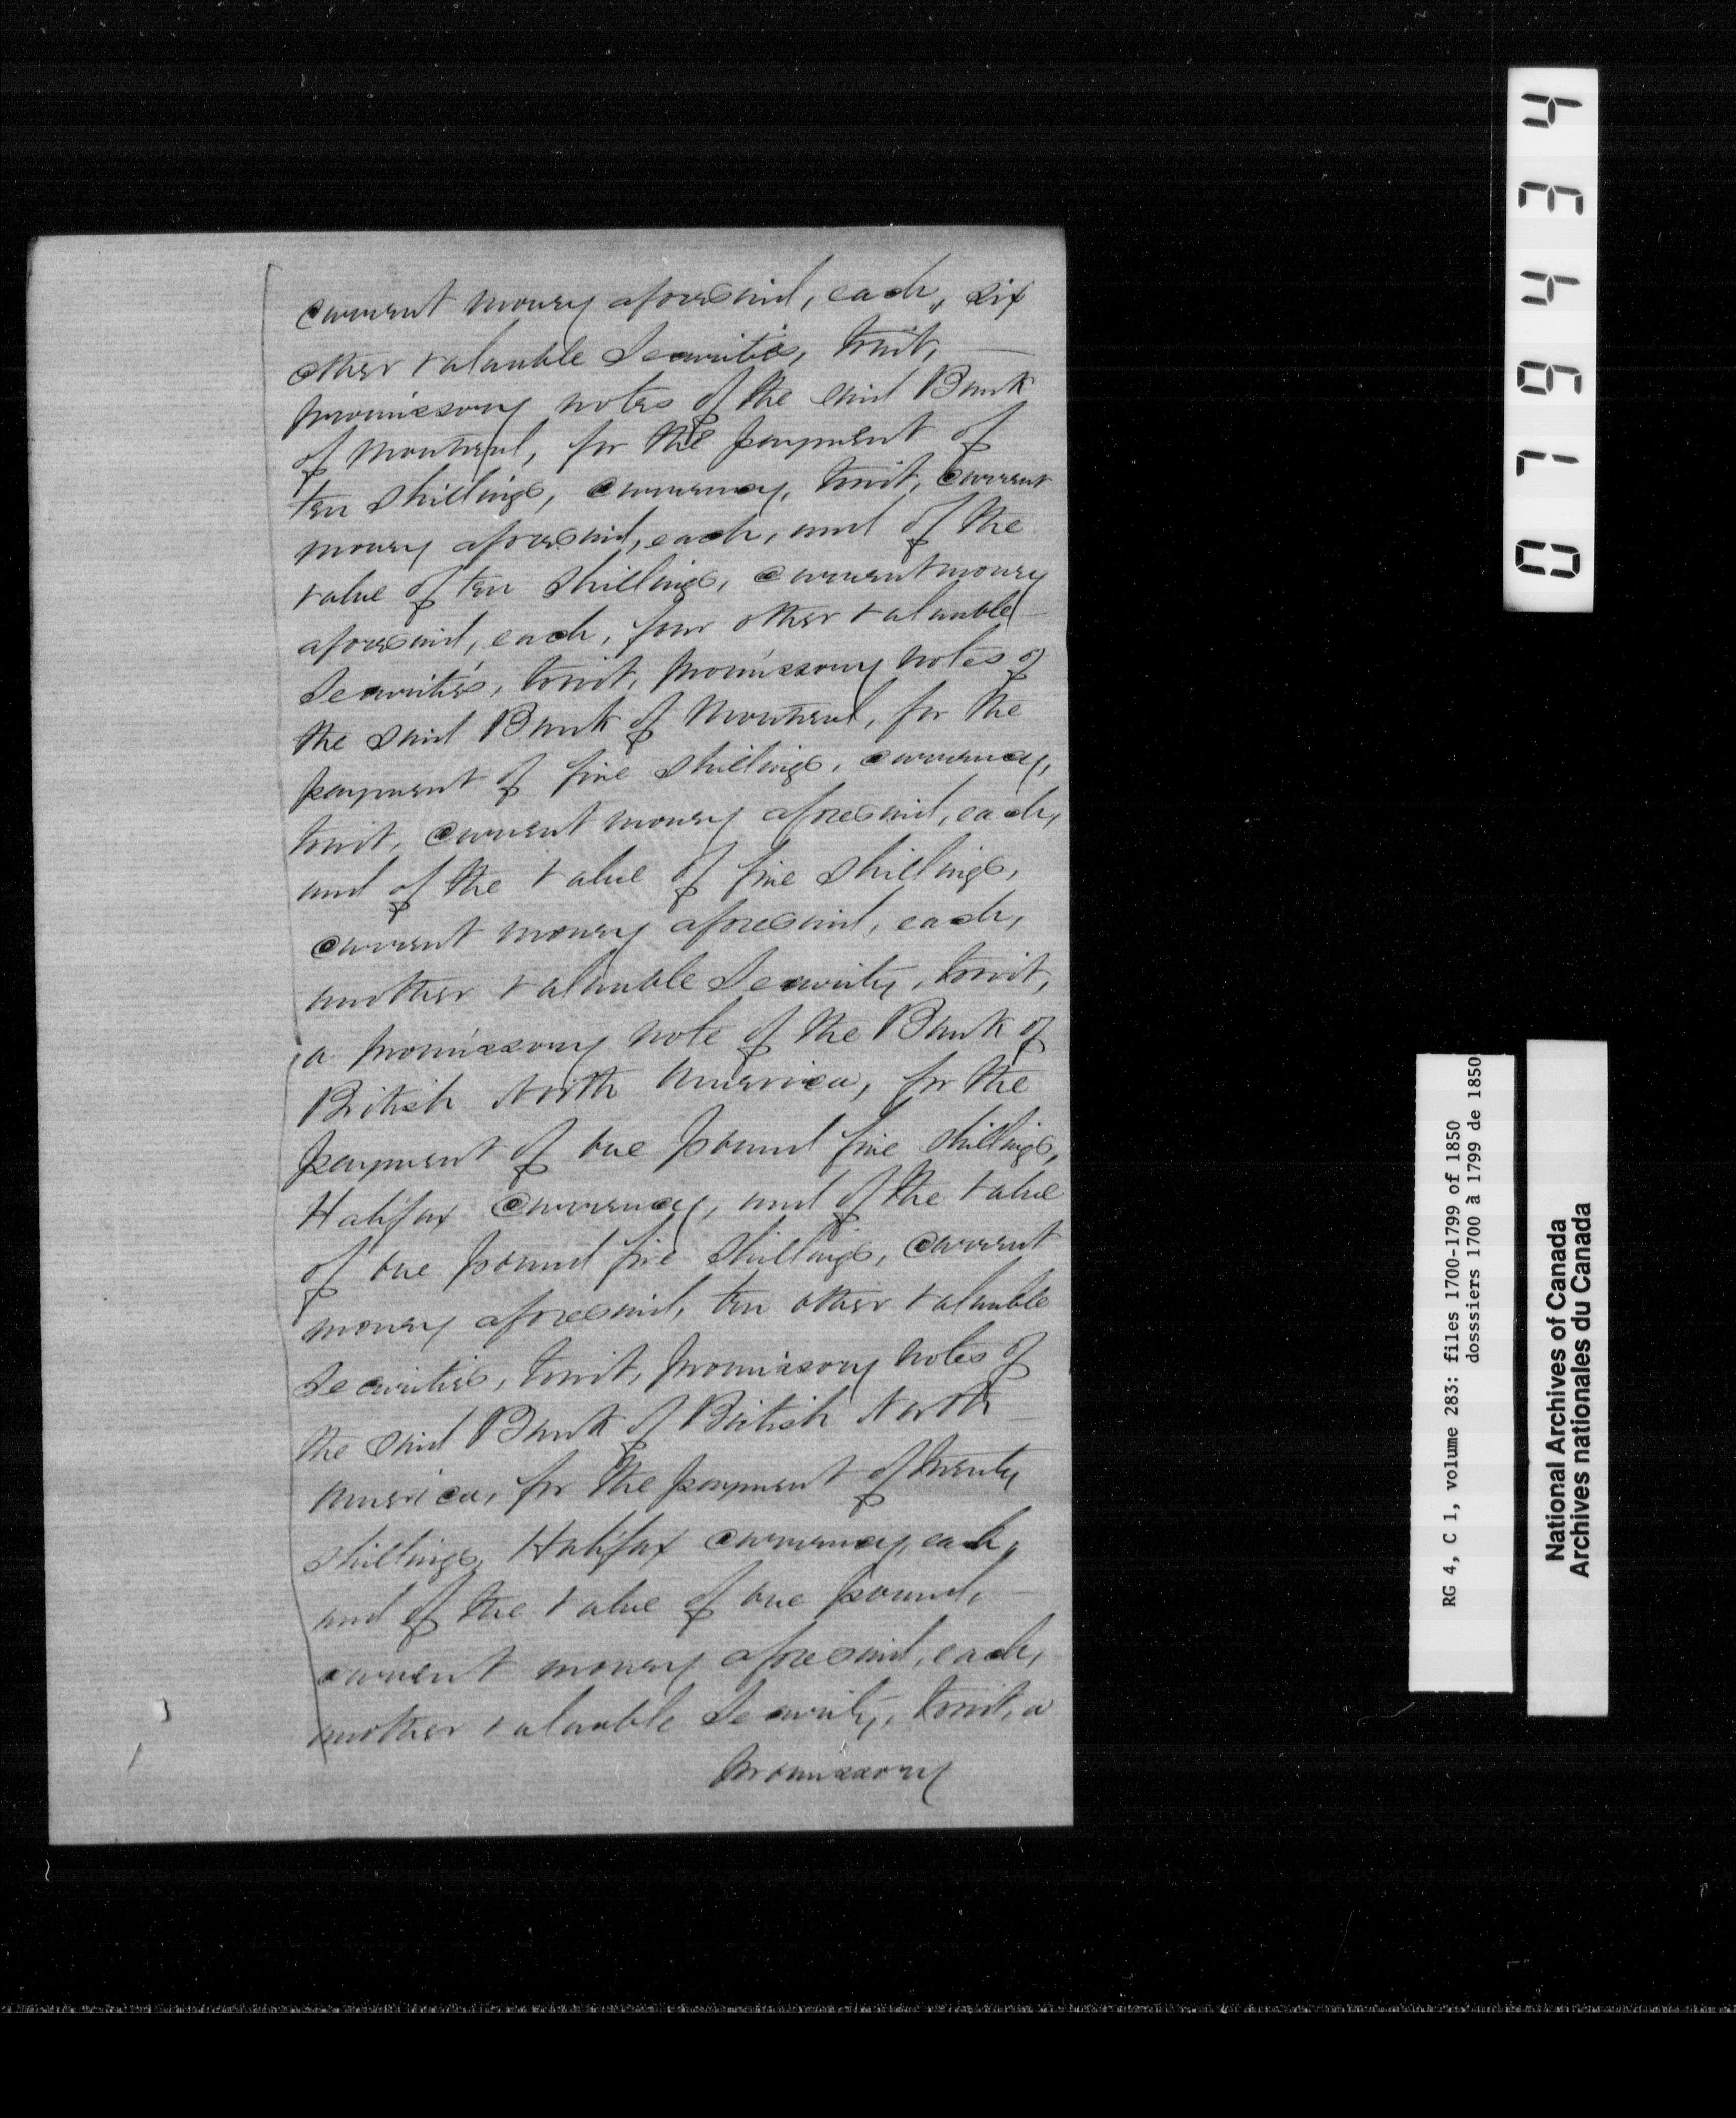 current money aforesaid, each, six
other valuable Securities, towit,
promissory notes of the said Bank
of Montreal, for the payment of
ten shillings, currency, towit, current
money aforesaid, each, and of the
value of ten shillings, current money
aforesaid, each, four other valuable
Securities, towit, promissory notes of
the said Bank of Montreal, for the
payment of five shillings, currency,
towit, current money aforesaid, each,
and of the value of five shillings,
current money aforesaid, each,
another valuable Security, towit,
a promissory note of the Bank of
British North America, for the
payment of one pound five shillings,
Halifax currency, and of the value
of one pound five shillings, current
money aforesaid, ten other valuable
Securities, towit, promissory notes of
the said Bank of British North
America, for the payment of twenty
shillings, Halifax currency, each,
and of the value of one pound,
current money aforesaid, each,
another valuable Security, towit, a
promissory
079434
RG 4, C 1, volume 283: files 1700-1799 of 1850
dosssiers 1700 à 1799 de 1850
National Archives of Canada
Archives nationales du Canada